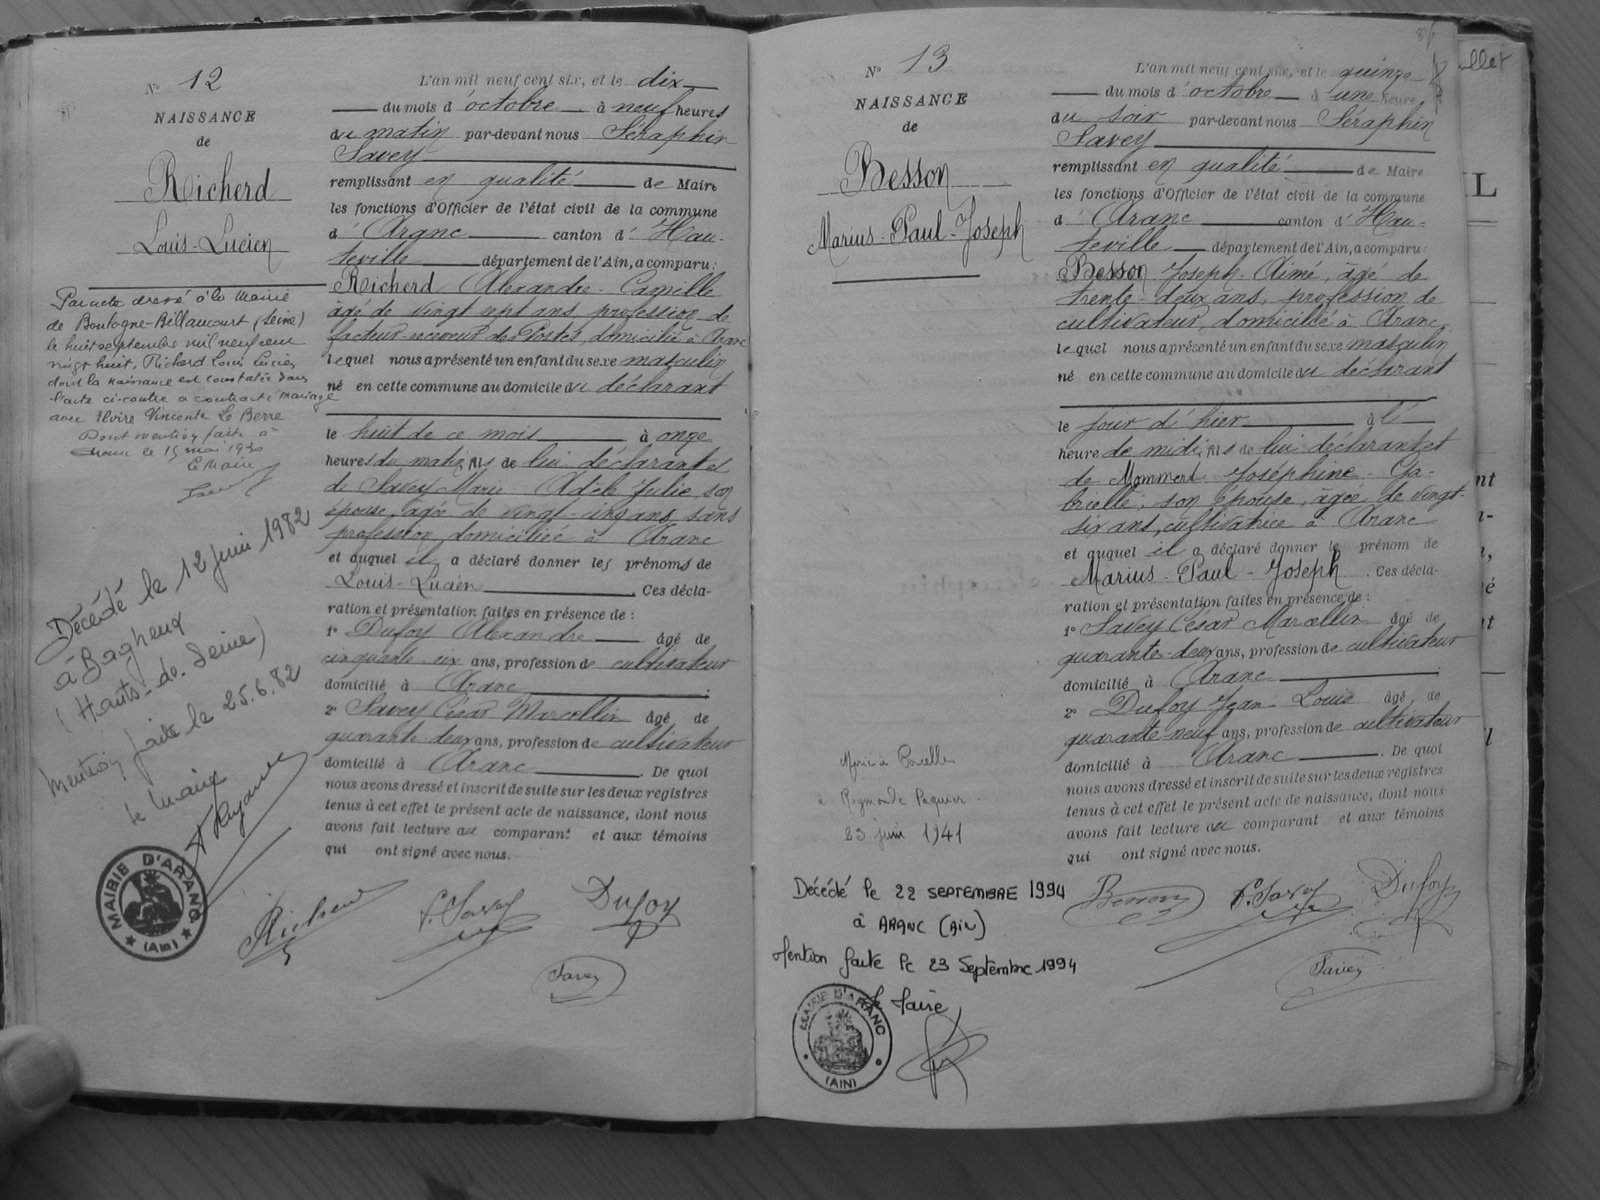 N° 12
NAISSANCE
de
Richerd
Louis-Lucien
Par acte dressé à la Mairie
de Boulogne-Billancourt (Seine)
le huit septembre mil neuf cent
vingt huit, Richerd Louis Lucien
dont la naissance est constatée dans
l'acte ci-contre a contracté mariage
avec Elvire Vincente Le Berre
Dont mention faite à
Aranc le 15 mai 1930
Le Maire
Décédé le 12 juin 1982
à Bagneux
(Hauts-de-Seine)
Mention faite le 25.6.82
le Maire
MAIRIE D'ARANC
(Ain)
L'an mil neuf cent six, et le dix
du mois d'octobre à neuf heures
du matin par-devant nous Séraphin
Savey
remplissant en qualité de Maire
les fonctions d'Officier de l'état civil de la commune
d'Aranc canton d'Hau-
teville département de l'Ain, a comparu:
Richerd Alexandre-Camille
âgé de vingt sept ans, profession de
facteur-receveur des Postes, domicilié à Aranc
lequel nous a présenté un enfant du sexe masculin
né en cette commune au domicile du déclarant
le huit de ce mois à onze
heures du matin, fils de lui déclarant et
de Savey Marie Adèle Julie, son
épouse, agée de vingt-cinq ans, sans
profession, domiciliée à Aranc
et auquel il a déclaré donner les prénoms de
Louis-Lucien. Ces décla-
ration et présentation faites en présence de :
1° Dufoy Alexandre âgé de
cinquante six ans, profession de cultivateur
domicilié à Aranc
2° Savey César Marcellin âgé de
quarante-deux ans, profession de cultivateur
domicilié à Aranc. De quoi
nous avons dressé et inscrit de suite sur les deux registres
tenus à cet effet le présent acte de naissance, dont nous
avons fait lecture au comparant et aux témoins
qui ont signé avec nous.
Richerd
Savey
Dufoy
Savey
N° 13
NAISSANCE
de
Besson
Marius-Paul-Joseph
Raymonde Paquier
23 juin 1941
Décédé le 22 septembre 1994
à ARANC (Ain)
Mention faite le 23 Septembre 1994
le Maire
MAIRIE D'ARANC
(AIN)
L'an mil neuf cent six, et le quinze
du mois d'octobre à une heure
du soir par-devant nous Séraphin
Savey
remplissant en qualité de Maire
les fonctions d'Officier de l'état civil de la commune
d'Aranc canton d'Hau-
teville département de l'Ain, a comparu:
Besson Joseph-Aimé, âgé de
trente-deux ans, profession de
cultivateur, domicilié à Aranc
lequel nous a présenté un enfant du sexe masculin
né en cette commune au domicile du déclarant
le jour d'hier à l'
heure de midi, fils de lui déclarant et
de Mommert Joséphine-Ga-
brielle, son épouse, agée de vingt-
six ans, cultivatrice à Aranc
et auquel il a déclaré donner le prénom de
Marius-Paul-Joseph. Ces décla-
ration et présentation faites en présence de :
1° Savey César Marcellin âgé de
quarante-deux ans, profession de cultivateur
domicilié à Aranc
2° Dufoy Jean Louis âgé de
quarante-neuf ans, profession de cultivateur
domicilié à Aranc. De quoi
nous avons dressé et inscrit de suite sur les deux registres
tenus à cet effet le présent acte de naissance, dont nous
avons fait lecture au comparant et aux témoins
qui ont signé avec nous.
Besson
Savey
Dufoy
Savey